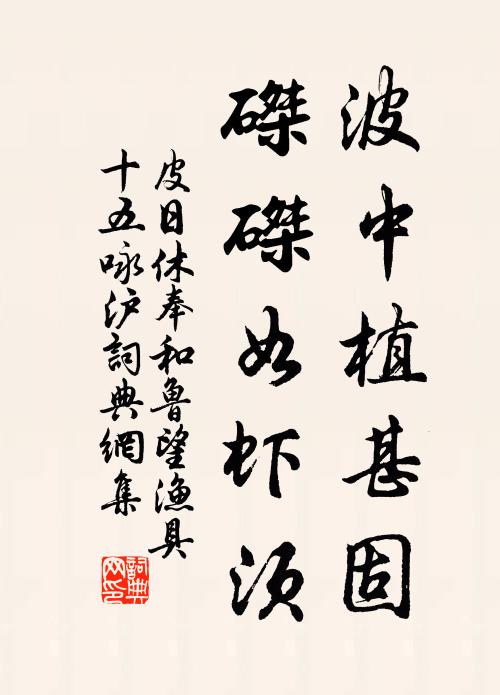 波中植甚固
磔磔如虾须
皮日休奉和鲁望渔具
十五咏沪詞典網集
詞典
网印